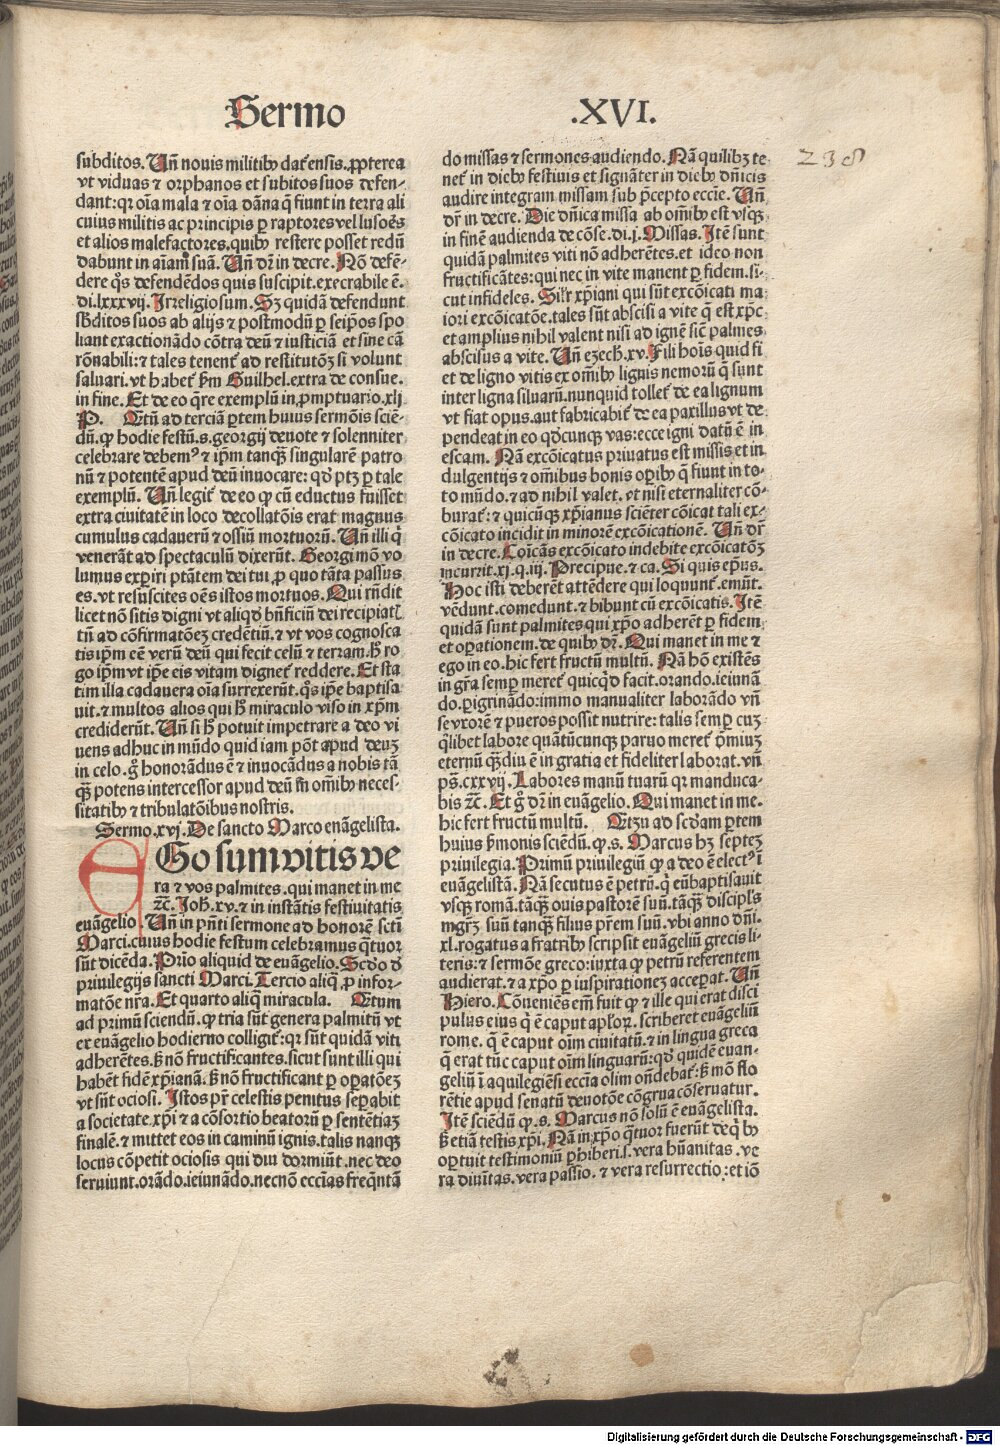 Sermo .XVI.
238
subditos. Uñ nouis militibꝰ dat̃ ensis. ꝓpterea
vt viduas ⁊ orphanos et subitos suos defen-
dant: qꝛ oĩa mala ⁊ oĩa dãna q̃ fiunt in terra ali
cuius militis ac principis ꝑ raptores vel lusoẽs
et alios malefactores. quibꝰ restere posset redũ
dabunt in aĩam suã. Uñ dr̃ in decre. Nõ defẽ-
dere q̃s defendẽdos quis suscipit. execrabile ẽ.
di. lxxxvij. Irreligiosum. Sꝫ quidã defendunt
sb̃ditos suos ab alijs ⁊ postmodũ ꝑ seip̃os spo
liant exactionãdo cõtra deũ ⁊ iusticiã et sine cã
rõnabili: ⁊ tales tenent̃ ad restitutõꝫ si volunt
saluari. vt habet̃ ẜm Guilhel. extra de consue.
in fine. Et de eo q̃re exemplũ in ꝓmptuario. xlj
P. Qtũ ad terciã ꝑtem huius sermõis sciẽ-
dũ. ꝙ hodie festũ. s. georgij deuote ⁊ solenniter
celebrare debemꝰ ⁊ ip̃m tanqꝫ singularẽ patro
nũ ⁊ potentẽ apud deũ inuocare: qd̃ ptꝫ ꝑ tale
exemplũ. Uñ legit̃ de eo ꝙ cũ eductus fuisset
extra ciuitatẽ in loco decollatõis erat magnus
cumulus cadauerũ ⁊ ossiũ mortuorũ. Uñ illi q̃
venerãt ad spectaculũ dixerũt. Georgi mõ vo
lumus experiri ptãtem dei tui, ꝓ quo tãta passus
es. vt resuscites oẽs istos mortuos. Qui rñdit
licet nõ sitis digni vt aliqd̃ bñficiũ dei recipiat̃
tñ ad cõfirmatõeꝫ credẽtiũ. ⁊ vt vos cognosca
tis ip̃m eẽ verũ deũ qui fecit celũ ⁊ terram. h̃ ro
go ip̃m vt ip̃e eis vitam dignet̃ reddere. Et sta
tim illa cadauera oĩa surrexerũt. q̃s ip̃e baptisa
uit. ⁊ multos alios qui h̃ miraculo viso in xp̃m
crediderũt. Uñ si h̃ potuit impetrare a deo vi
uens adhuc in mũdo quid iam põt apud deuꝫ
in celo. g̃ honorãdus ẽ ⁊ inuocãdus a nobis tã
qꝫ potens intercessor apud deũ in omĩbꝰ neces-
sitatibꝰ ⁊ tribulatõibus nostris.
Sermo. xvj. De sancto Marco euãgelista.
EGo sum vitis ve
ra ⁊ vos palmites. qui manet in me
⁊c̃. Ioh̃. xv. ⁊ in instãtis festiuitatis
euãgelio. Uñ in pñti sermone ad honorẽ sctĩ
Marci. cuius hodie festum celebramus q̃tuor
sũt dicẽda. Prĩo aliquid de euãgelio. Scd̃o d̃
priuilegijs sancti Marci. Tercio aliq̃ ꝓ infor-
matõe nr̃a. Et quarto aliq̃ miracula. Qtum
ad primũ sciendũ. ꝙ tria sũt genera palmitũ vt
ex euãgelio hodierno colligit̃: qꝛ sũt quidã viti
adherẽtes. ẜ nõ fructificantes. sicut sunt illi qui
habẽt fidẽ xp̃ianã. ẜ nõ fructificant ꝑ oꝑatõeꝫ
vt sũt ociosi. Istos pr̃ celestis penitus seꝑabit
a societate xp̃i ⁊ a cõsortio beatorũ ꝑ sentẽtiaꝫ
finalẽ. ⁊ mittet eos in caminũ ignis. talis nanqꝫ
locus cõpetit ociosis qui diu dormiũt. nec deo
seruiunt. orãdo. ieiunãdo. necnõ ecclĩas freq̃ntã
do missas ⁊ sermones audiendo. Nã quilibꝫ te
net̃ in diebꝰ festiuis et signãter in diebꝰ dñicis
audire integram missam sub p̃cepto eccĩe. Uñ
dr̃ in decre. Die dñica missa ab om̃ibꝰ est vsqꝫ
in finẽ audienda de cõse. di. j. Missas. Itẽ sunt
quidã palmites viti nõ adherẽtes. et ideo non
fructificãtes: qui nec in vite manent ꝑ fidem. si-
cut infideles. Silr̃ xp̃iani qui sũt excõicati ma
iori excõicatõe. tales sũt abscisi a vite q̃ est xp̃c
et amplius nihil valent nisi ad ignẽ sic̃ palmes
abscisus a vite. Uñ ezech. xv. Fili hoĩs quid fi
et de ligno vitis ex om̃ibꝰ lignis nemorũ q̃ sunt
inter ligna siluarũ. nunquid tollet̃ de ea lignum
vt fiat opus. aut fabricabit̃ de ea paxillus vt de
pendeat in eo qd̃cunqꝫ vas: ecce igni datũ ẽ in
escam. Nã excõicatus priuatus est missis et in
dulgentijs ⁊ om̃ibus bonis oꝑibꝰ q̃ fiunt in to-
to mũdo. ⁊ ad nihil valet. vt nisi eternaliter cõ-
burat̃: ⁊ quicũqꝫ xp̃ianus sciẽter cõicat tali ex-
cõicato incidit in minorẽ excõicationẽ. Uñ dr̃
in decre. Cõicãs excõicato indebite excõicatõꝫ
incurrit. xj. q. iij. Precipue. ⁊ ca. Si quis ep̃us.
Hoc isti deberẽt attẽdere qui loqunt̃. emũt.
vẽdunt. comedunt. ⁊ bibunt cũ excõicatis. Itẽ
quidã sunt palmites qui xp̃o adherẽt ꝑ fidem
et oꝑationem. de quibꝰ dr̃. Qui manet in me ⁊
ego in eo. hic fert fructũ multũ. Nã hõ existẽs
in gr̃a semꝑ meret̃ quicqd̃ facit. orando. ieiunã
do. ꝑigrinãdo: immo manualiter laborãdo vñ
se vxorẽ ⁊ pueros possit nutrire: talis semꝑ cuꝫ
q̃libet labore quãtũcunqꝫ paruo meret̃ p̃miuꝫ
eternũ qꝫdiu ẽ in gratia et fideliter laborat. vñ
ps̃. cxxvij. Labores manũ tuarũ qꝛ manduca-
bis ⁊c̃. Et g̃ dr̃ in euãgelio. Qui manet in me.
hic fert fructũ multũ. Qtꝫu ad scd̃am ꝑtem
huius ẜmonis sciẽdũ. ꝙ. s. Marcus hꝫ septeꝫ
priuilegia. Primũ priuilegiũ ꝙ a deo ẽ electꝰ ĩ
euãgelistã. Nã secutus ẽ petrũ. q̃ eũ baptisauit
vsqꝫ romã. tãqꝫ ouis pastorẽ suũ. tãqꝫ discipl̃s
mgr̃ꝫ suũ tanqꝫ filius pr̃em suũ. vbi anno dñi.
xl. rogatus a fratribꝰ scripsit euãgeliũ grecis li-
teris: ⁊ sermõe greco: iuxta ꝙ petrũ referentem
audierat. ⁊ a xp̃o ꝑ iuspirationeꝫ acceꝑat. Uñ
Hiero. Cõueniẽs em̃ fuit ꝙ ⁊ ille qui erat disci
pulus eius q̃ ẽ caput apl̃oꝝ. scriberet euãgeliũ
rome. q̃ ẽ caput oĩm ciuitatũ. ⁊ in lingua greca
q̃ erat tũc caput oĩm linguarũ: qd̃ quidẽ euan-
geliũ ĩ aquilegiẽsi eccĩa olim oñdebat̃: ẜ mõ flo
rẽtie apud senatũ deuotõe cõgrua cõseruatur.
Itẽ sciẽdũ ꝙ. s. Marcus nõ solũ ẽ euãgelista.
ẜ etiã testis xp̃i. Nã in xp̃o q̃tuor fuerũt de q̃bꝰ
oꝑtuit testimoniũ ꝑhiberi. s. vera hũanitas. ve
ra diuĩtas. vera passio. ⁊ vera resurrectio: et iõ
Digitalisierung gefördert durch die Deutsche Forschungsgemeinschaft - DFG